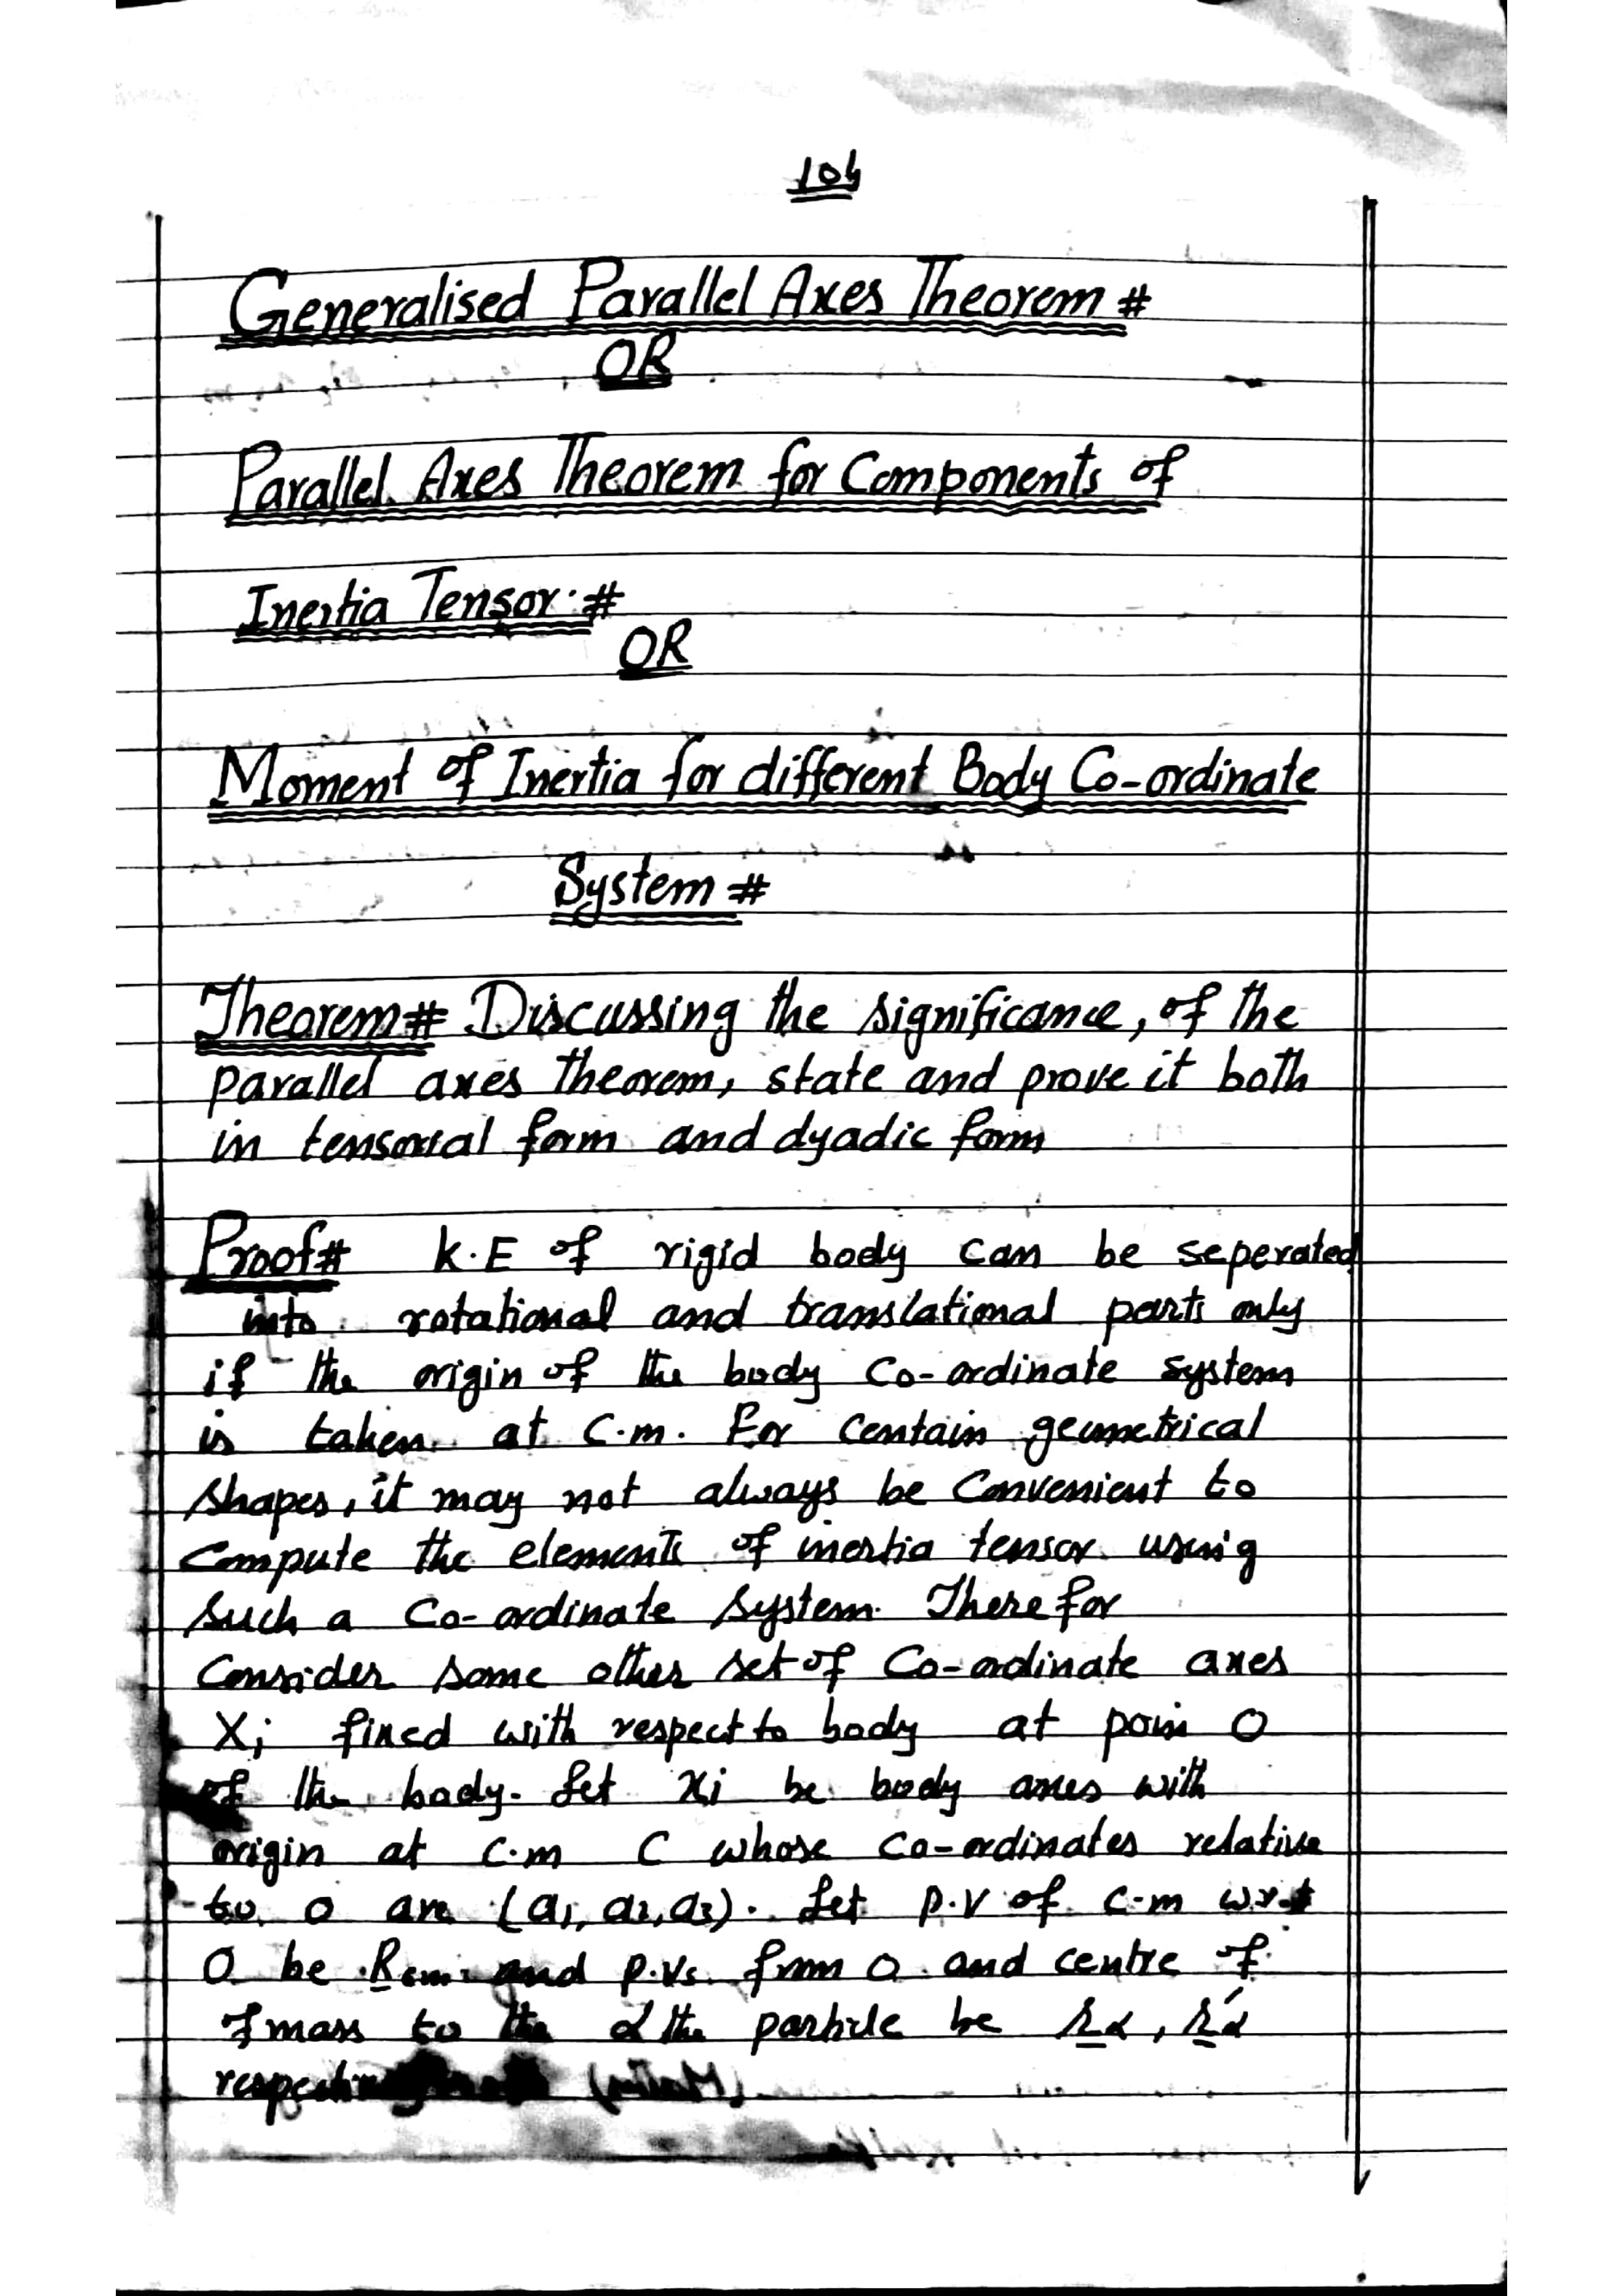 104
Generalised Parallel Axes Theorem #
OR
Parallel Axes Theorem for Components of
Inertia Tensor. #
OR
Moment of Inertia for different Body Co-ordinate
System #
Theorem # Discussing the significance, of the
parallel axes theorem, state and prove it both
in tensorial form and dyadic form
Proof # K.E of rigid body can be seperated
into rotational and translational parts only
if the origin of the body Co-ordinate system
is taken at C.m. For Centain geometrical
shapes, it may not always be Convenient to
Compute the elements of inertia tensor using
such a Co-ordinate system. There for
Consider some other set of Co-ordinate axes
Xi fixed with respect to body at poin O
of the body. Let xi be body axes with
origin at C.m C whose Co-ordinates relative
to O are (a1, a2, a3). Let P.V of C.m w.r.t
O be Rcm and P.Vs. from O and centre of
of mass to the α the particle be rα, r'α